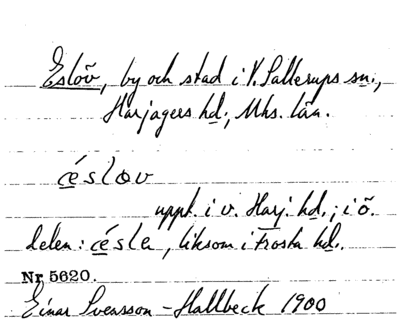 Eslöv, by och stad i V. Sallerups sn.,
Harjagers hd., Mhs. län.
éslov
uppt. i v. Harj. hd.; i ö.
delen: ésle, liksom i Frosta hd..
Nr 5620.
Einar Svensson-Hallbeck 1900